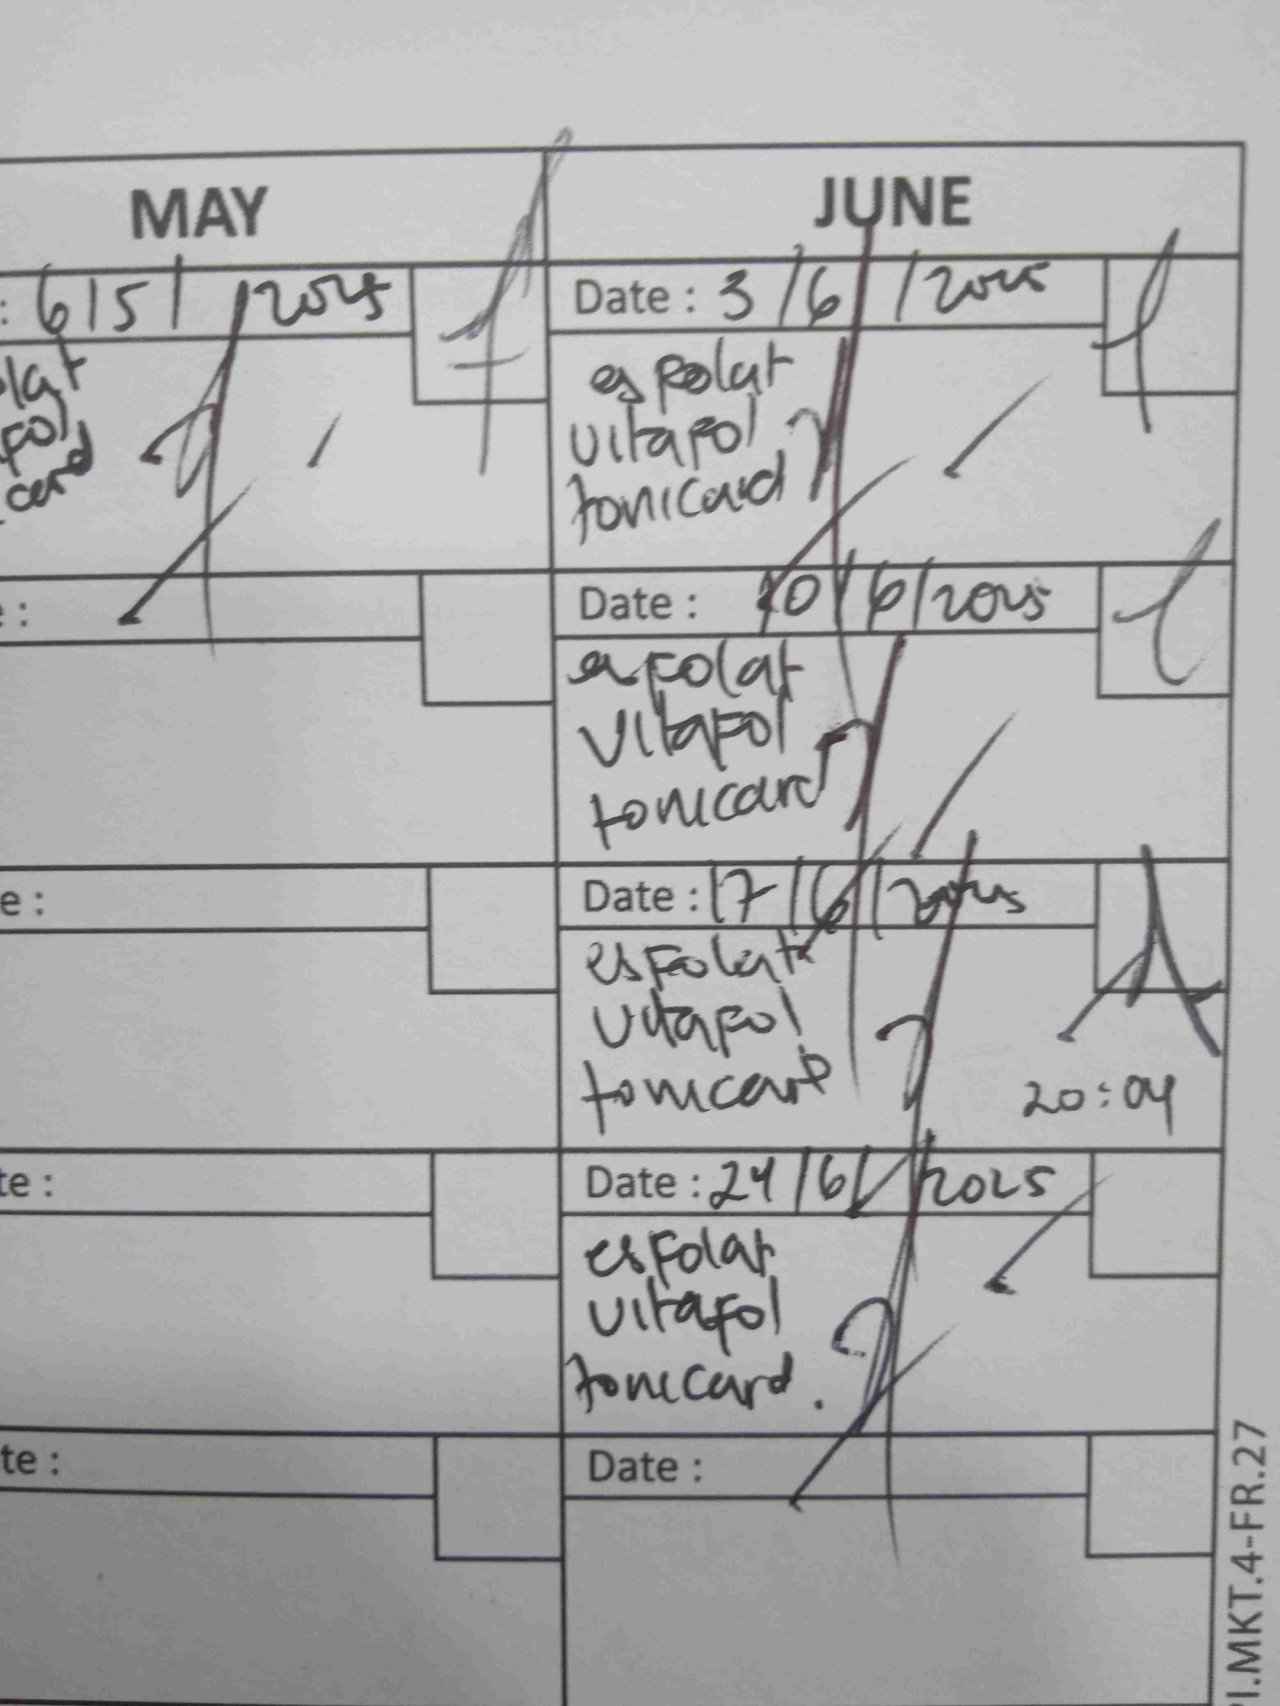 MAY
: 6/5/ /2025
olat
fol
card
e :
e :
te :
te :
JUNE
Date : 3/6 /2025
esfolat
vitafol
tonicard
Date : 10/6/2025
esfolat
vitafol
tonicard
Date : 17/6/2025
esfolat
vitafol
tonicard
20:04
Date : 24/6/ /2025
esfolat
vitafol
tonicard.
Date :
I.MKT.4-FR.27